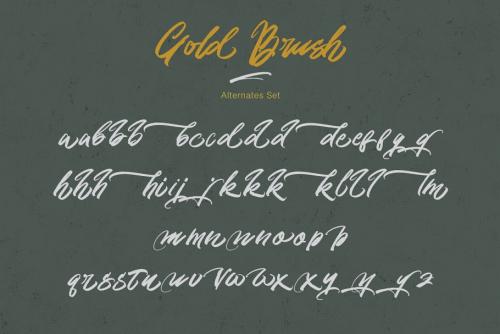 Gold Brush
Alternates Set
aabbb bccdddd deeffgg
hhh hiijjkkk klll lm
mmnnnoopp
qrssttuuv vwwxxyyyyz